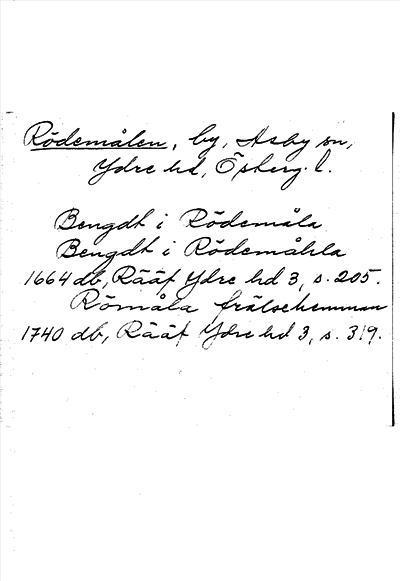 Rödemålen, by, Asby sn,
Ydre hd, Österg. l.
Bengdt i Rödemåla
Bengdt i Rödemåhla
1664 db, Rääf Ydre hd 3, s. 205.
Römåla frälsehemman
1740 db, Rääf Ydre hd 3, s. 319.